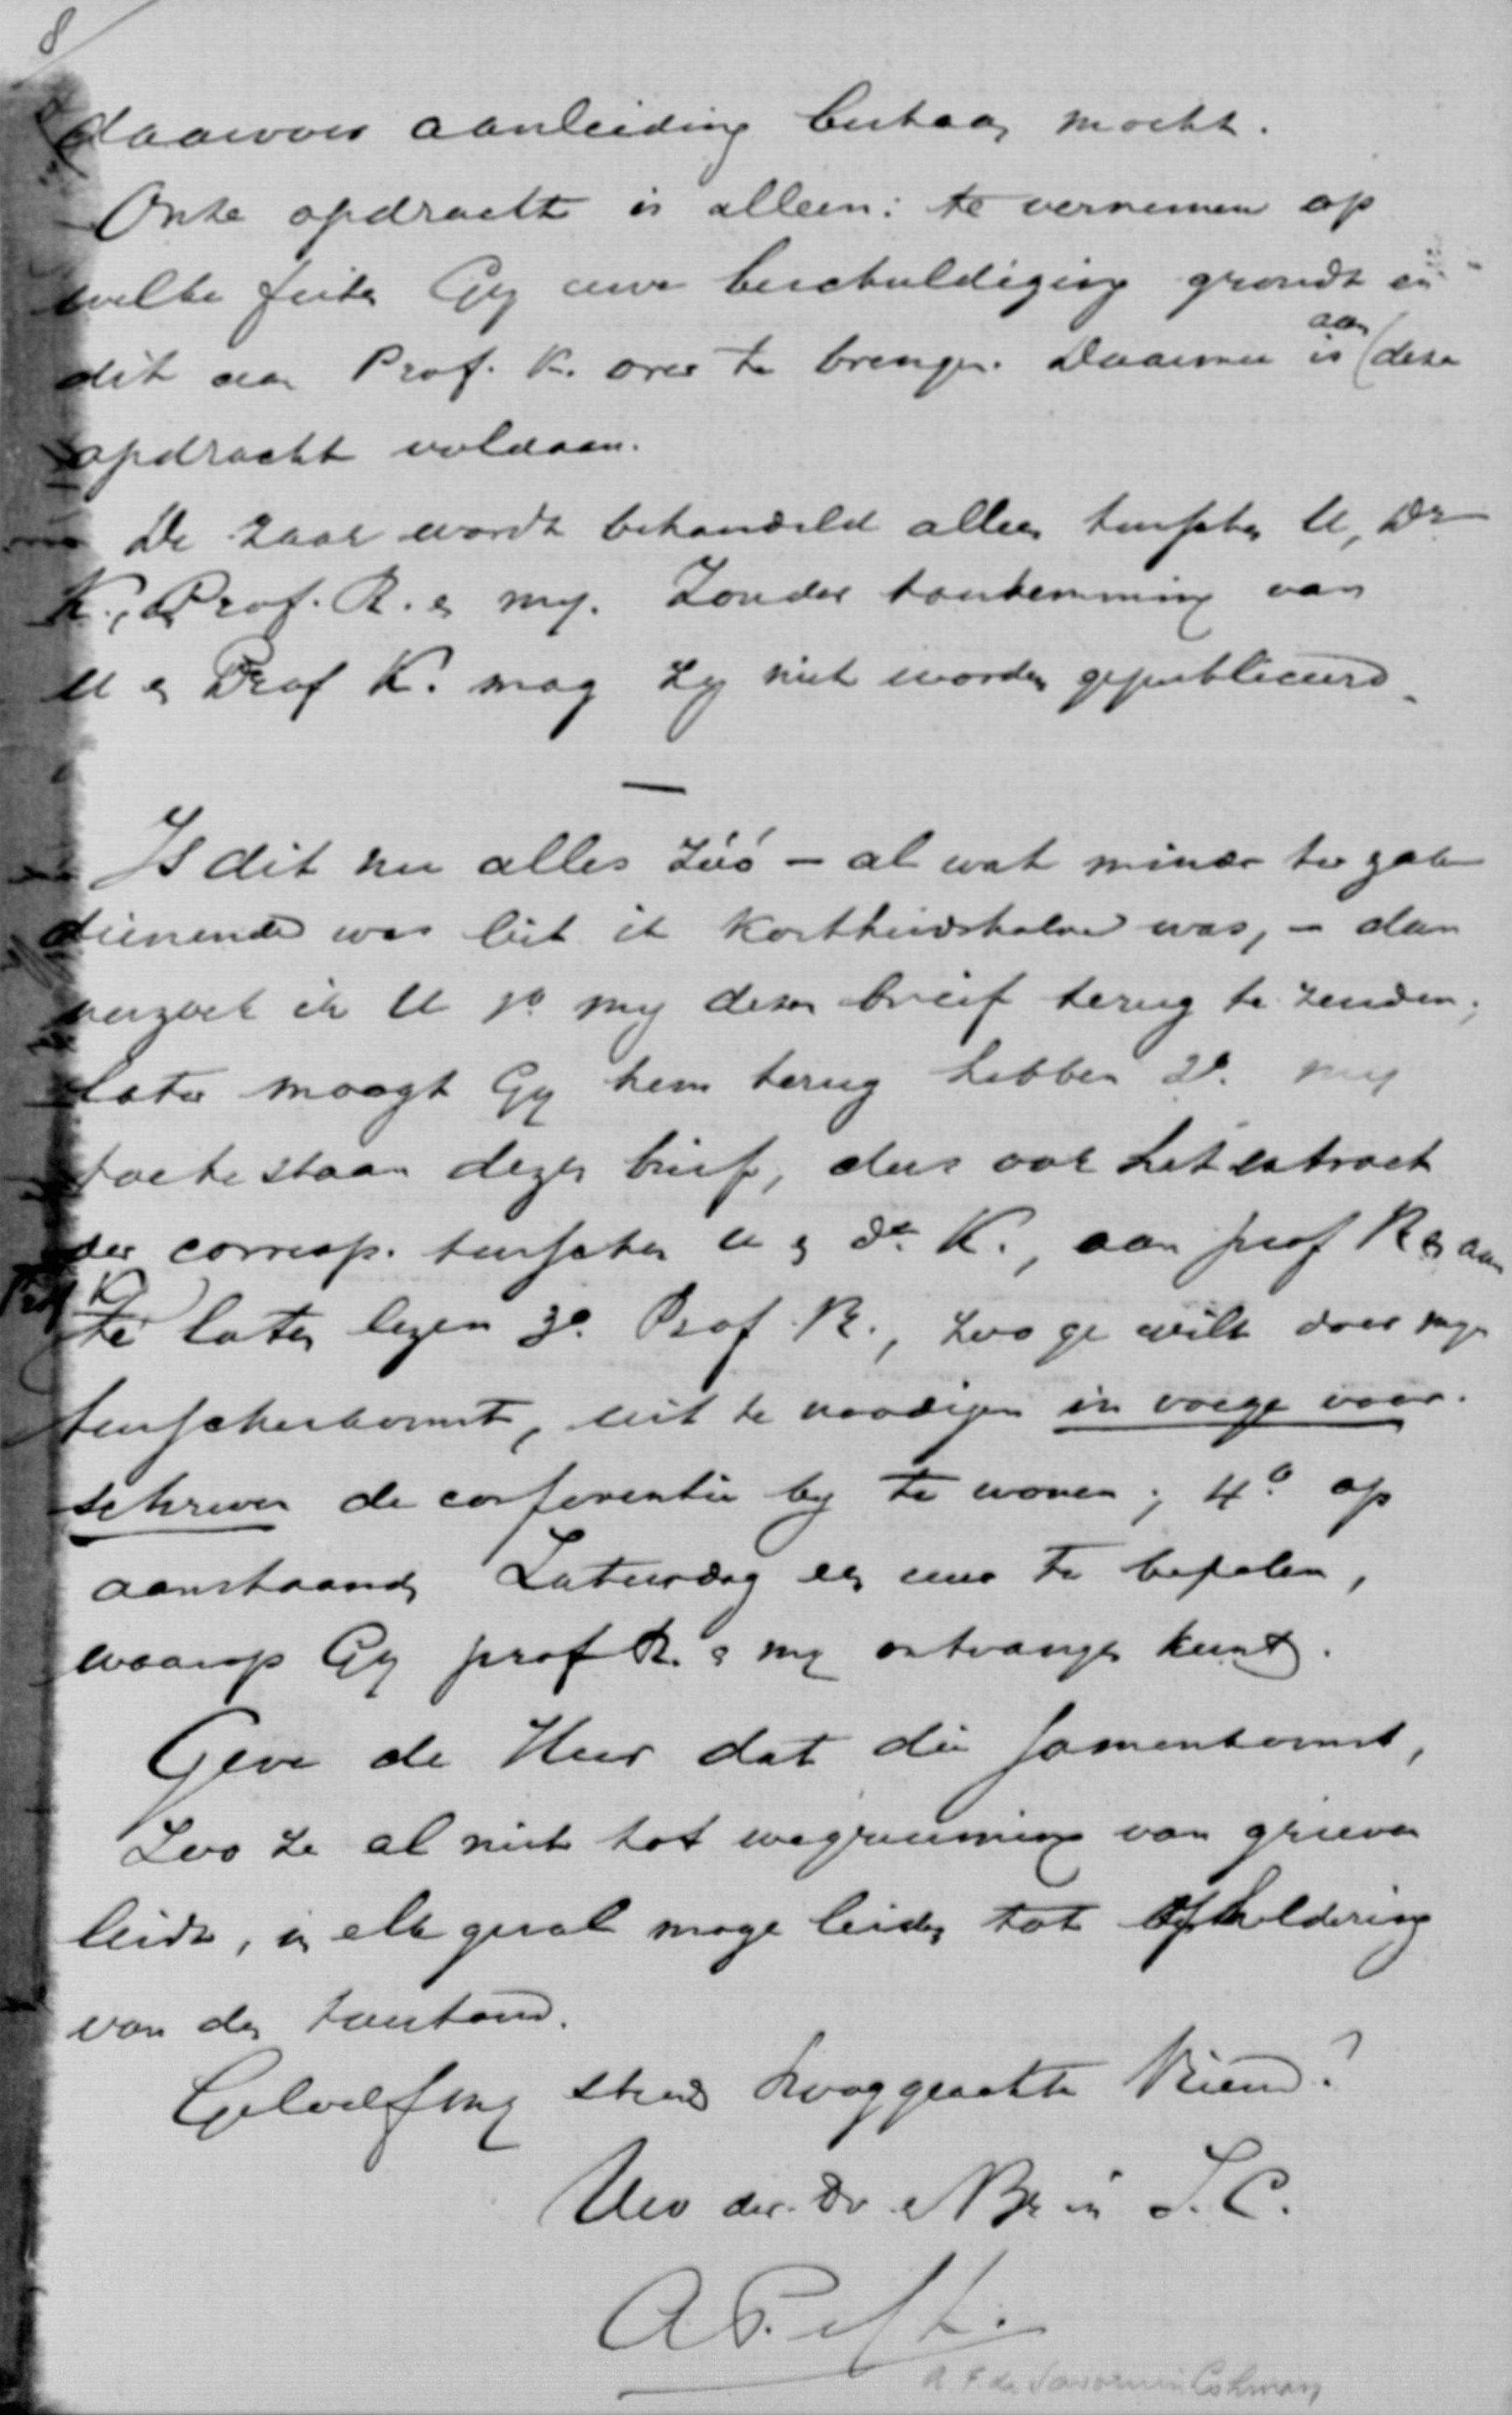 8
daarvoor aanleiding bestaan mocht.
Onze opdracht is alleen: te vernemen op
welke feiten Gy uwe beschuldiging grondt en
dit aan Prof. K. over te brengen. Daarmee is aan deze
opdracht voldaan.
De zaak wordt behandeld alleen tusschen U, Dr
K., Prof. R. en my. Zonder toestemming van
U en Prof K. mag zy niet worden gepubliceerd.
—
Is dit nu alles zóó – al wat minder ter zake
dienende was liet ik kortheidshalve weg, – dan
verzoek ik U 1o my dezen brief terug te zenden;
later moogt Gy hem terug hebben 2o. my
toe te staan dezen brief, dus ook het extract
der corresp. tusschen U en dr. K., aan prof R en aan
Prof K
te laten lezen 3o. Prof. R., zoo ge wilt door myn
tusschenkomst, uit te noodigen in voege voor-
schreven de conferentie by te wonen; 4o op
aanstaanden Zaturdag een uur te bepalen,
waarop Gy prof R. en my ontvangen kunt.
Geve de Heer dat die samenkomst,
zoo ze al niet tot wegruiming van grieven
leidt, in elk geval moge leiden tot opheldering
van den toestand.
Geloof my steeds hooggeachte Vriend!
Uw dw. Dr en Br in J. C.
A. F. de Savornin Lohman